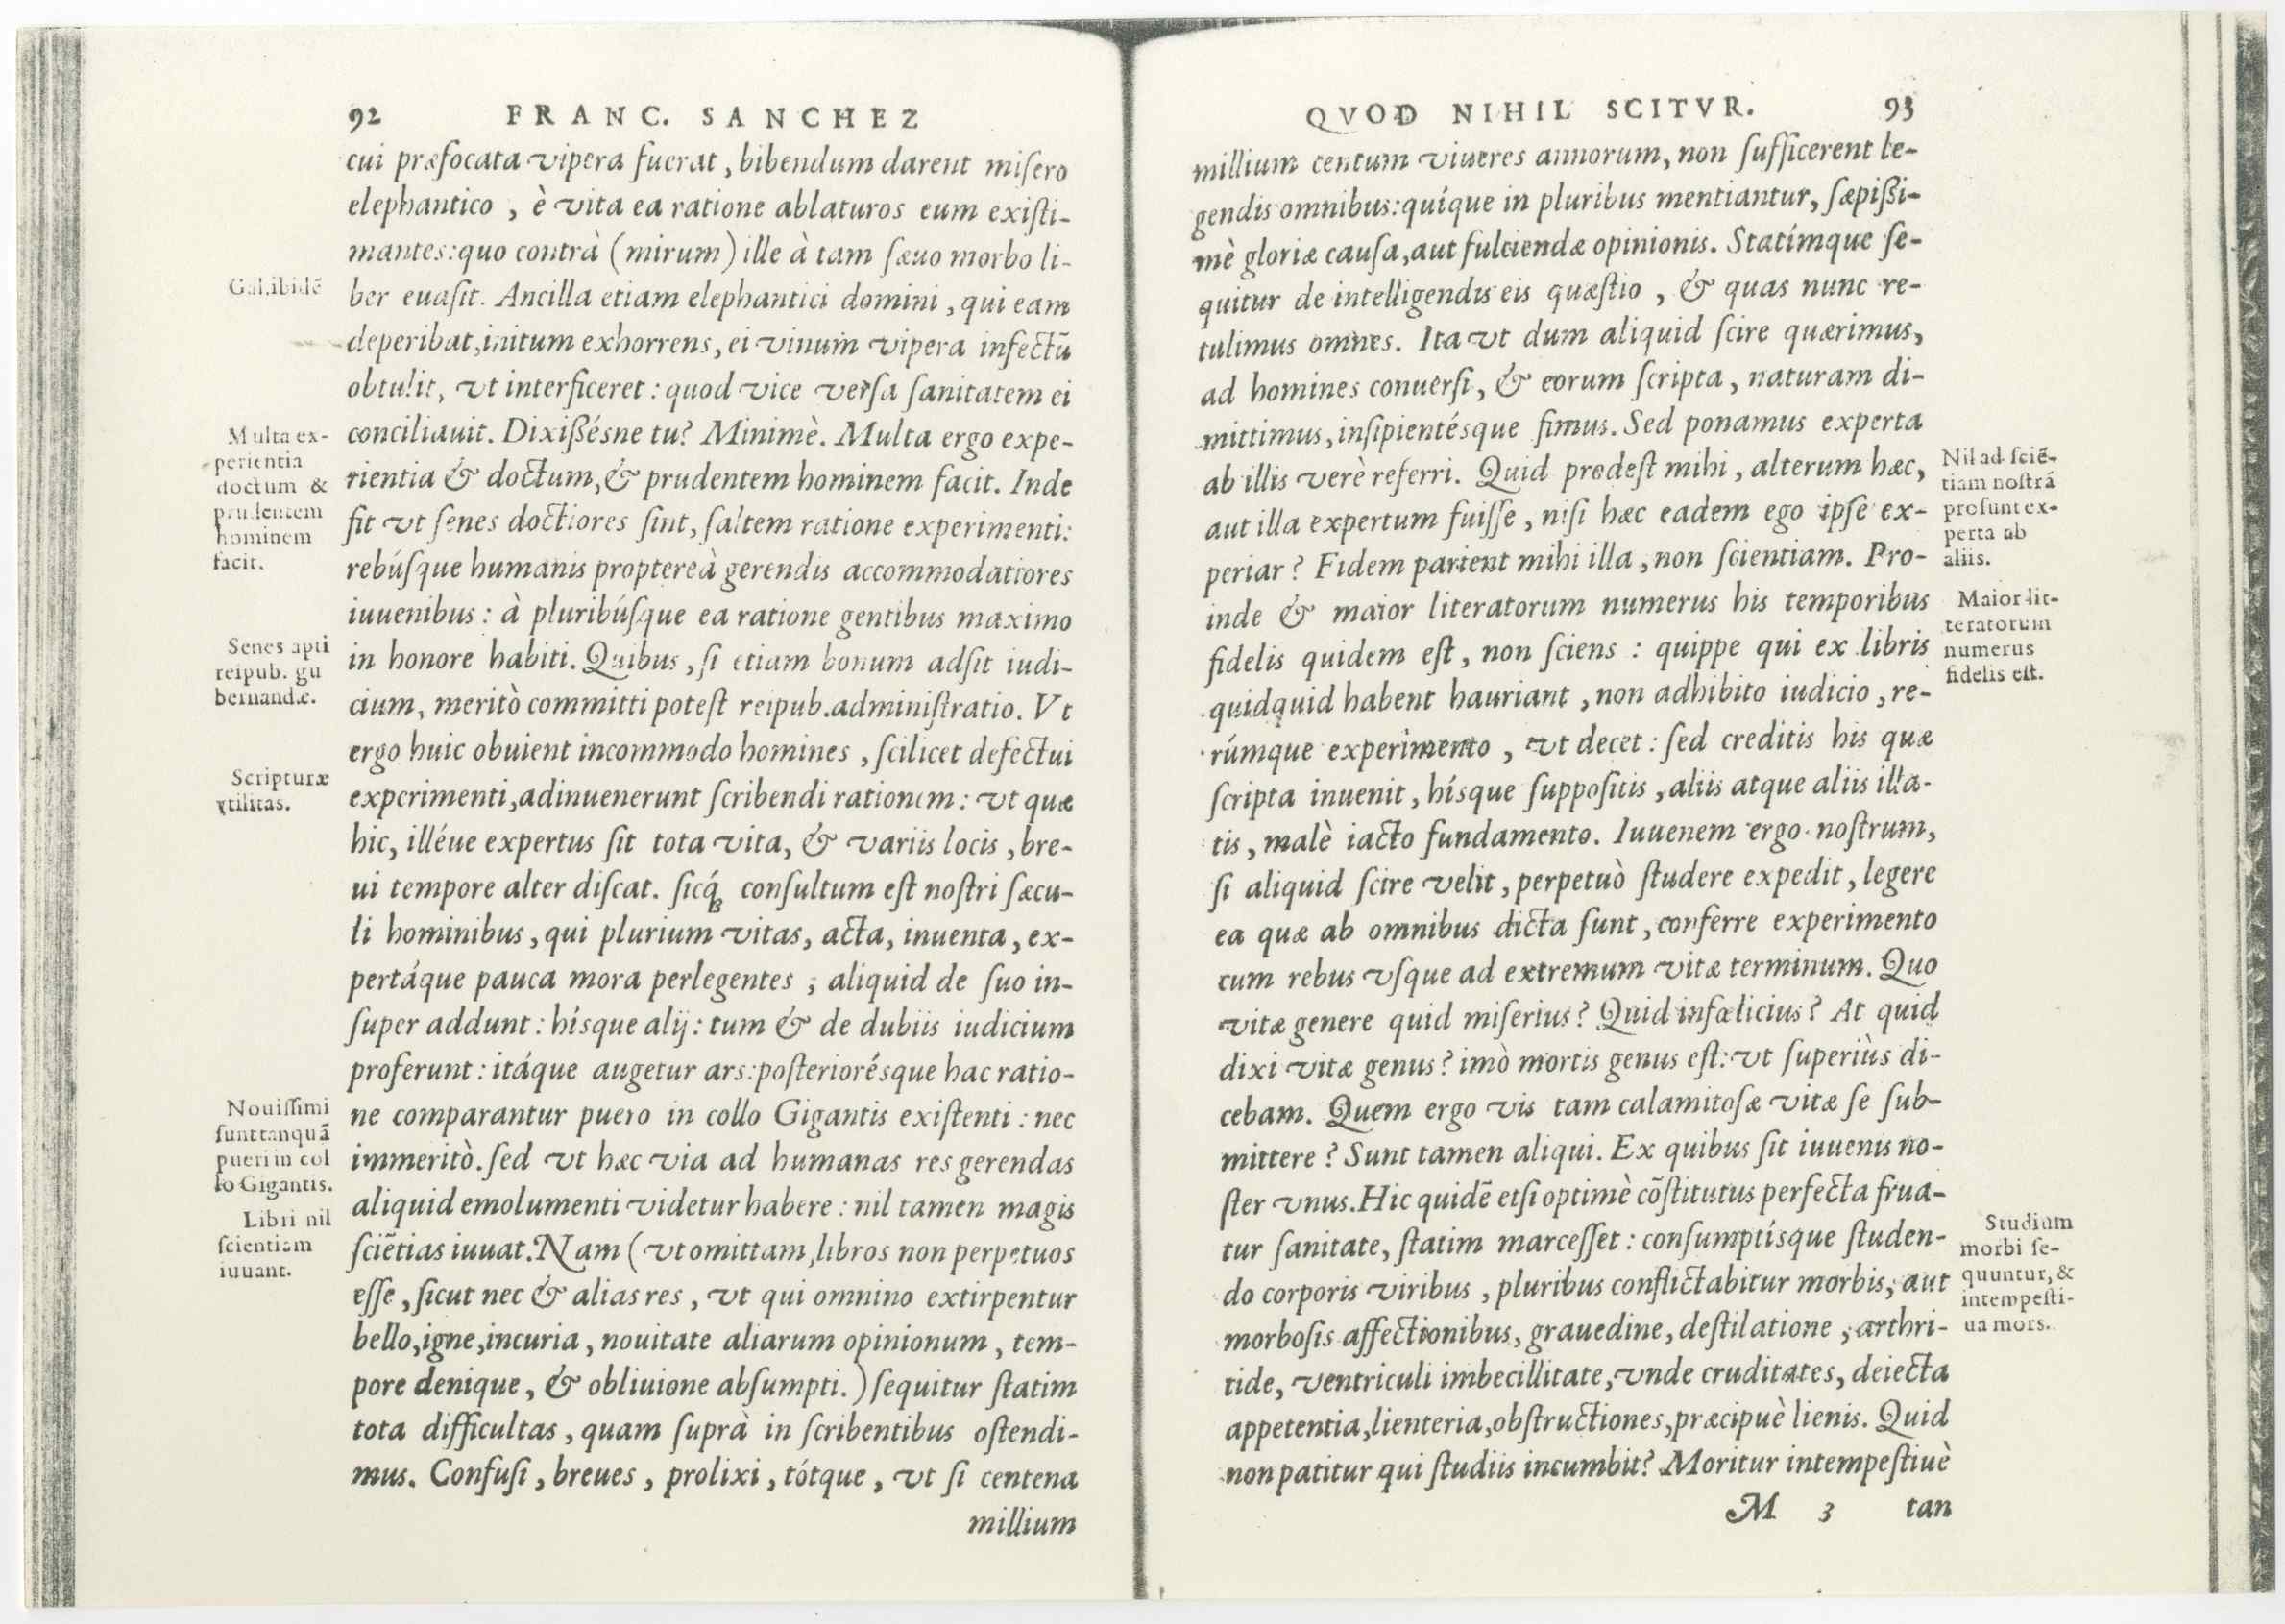 92 FRANC. SANCHEZ
cui præfocata vipera fuerat, bibendum darent misero
elephantico, è vita ea ratione ablaturos eum existi-
mantes: quo contrà (mirum) ille à tam sæuo morbo li-
Gal.ibidē
ber euasit. Ancilla etiam elephantici domini, qui eam
deperibat, initum exhorrens, ei vinum vipera infectū
obtulit, vt interficeret: quod vice versa sanitatem ei
conciliauit. Dixißésne tu? Minimè. Multa ergo expe-
rientia & doctum, & prudentem hominem facit. Inde
fit vt senes doctiores sint, saltem ratione experimenti:
rebúsque humanis proptereà gerendis accommodatiores
iuuenibus: à pluribúsque ea ratione gentibus maximo
in honore habiti. Quibus, si etiam bonum adsit iudi-
cium, meritò committi potest reipub. administratio. Vt
ergo huic obuient incommodo homines, scilicet defectui
experimenti, adinuenerunt scribendi rationem: vt quæ
hic, illéue expertus sit tota vita, & variis locis, bre-
ui tempore alter discat. sicq́ꝫ consultum est nostri sæcu-
li hominibus, qui plurium vitas, acta, inuenta, ex-
pertáque pauca mora perlegentes, aliquid de suo in-
super addunt: hísque alij: tum & de dubiis iudicium
proferunt: itáque augetur ars: posteriorésque hac ratio-
ne comparantur puero in collo Gigantis existenti: nec
immeritò. sed vt hæc via ad humanas res gerendas
aliquid emolumenti videtur habere: nil tamen magis
sciētias iuuat. Nam (vt omittam, libros non perpetuos
esse, sicut nec & alias res, vt qui omnino extirpentur
bello, igne, incuria, nouitate aliarum opinionum, tem-
pore denique, & obliuione absumpti.) sequitur statim
tota difficultas, quam suprà in scribentibus ostendi-
mus. Confusi, breues, prolixi, tótque, vt si centena
millium
Multa ex-
perientia
doctum &
prudentem
hominem
facit.
Senes apti
reipub. gu
bernandæ.
Scripturæ
vtilitas.
Nouissimi
sunt tanquā
pueri in col
lo Gigantis.
Libri nil
scientiam
iuuant.
QVOD NIHIL SCITVR. 93
millium centum viueres annorum, non sufficerent le-
gendis omnibus: quíque in pluribus mentiantur, sæpißi-
mè gloriæ causa, aut fulciendæ opinionis. Statímque se-
quitur de intelligendis eis quæstio, & quas nunc re-
tulimus omnes. Ita vt dum aliquid scire quærimus,
ad homines conuersi, & eorum scripta, naturam di-
mittimus, insipientésque fimus. Sed ponamus experta
ab illis verè referri. Quid prodest mihi, alterum hæc,
aut illa expertum fuisse, nisi hæc eadem ego ipse ex-
periar? Fidem parient mihi illa, non scientiam. Pro-
inde & maior literatorum numerus his temporibus
fidelis quidem est, non sciens: quippe qui ex libris
quidquid habent hauriant, non adhibito iudicio, re-
rúmque experimento, vt decet: sed creditis his quæ
scripta inuenit, hísque suppositis, aliis atque aliis illa-
tis, malè iacto fundamento. Iuuenem ergo nostrum,
si aliquid scire velit, perpetuò studere expedit, legere
ea quæ ab omnibus dicta sunt, conferre experimento
cum rebus vsque ad extremum vitæ terminum. Quo
vitæ genere quid miserius? Quid infœlicius? At quid
dixi vitæ genus? imò mortis genus est: vt superiùs di-
cebam. Quem ergo vis tam calamitosæ vitæ se sub-
mittere? Sunt tamen aliqui. Ex quibus sit iuuenis no-
ster vnus. Hic quidē etsi optimè cōstitutus perfecta frua-
tur sanitate, statim marcesset: consumptísque studen-
do corporis viribus, pluribus conflictabitur morbis, aut
morbosis affectionibus, grauedine, destilatione, arthri-
tide, ventriculi imbecillitate, vnde cruditates, deiecta
appetentia, lienteria, obstructiones, præcipuè lienis. Quid
non patitur qui studiis incumbit? Moritur intempestiuè
M 3 tan
Nil ad sciē-
tiam nostrā
prosunt ex-
perta ab
aliis.
Maior lit-
teratorum
numerus
fidelis est.
Studium
morbi se-
quuntur, &
intempesti-
ua mors.